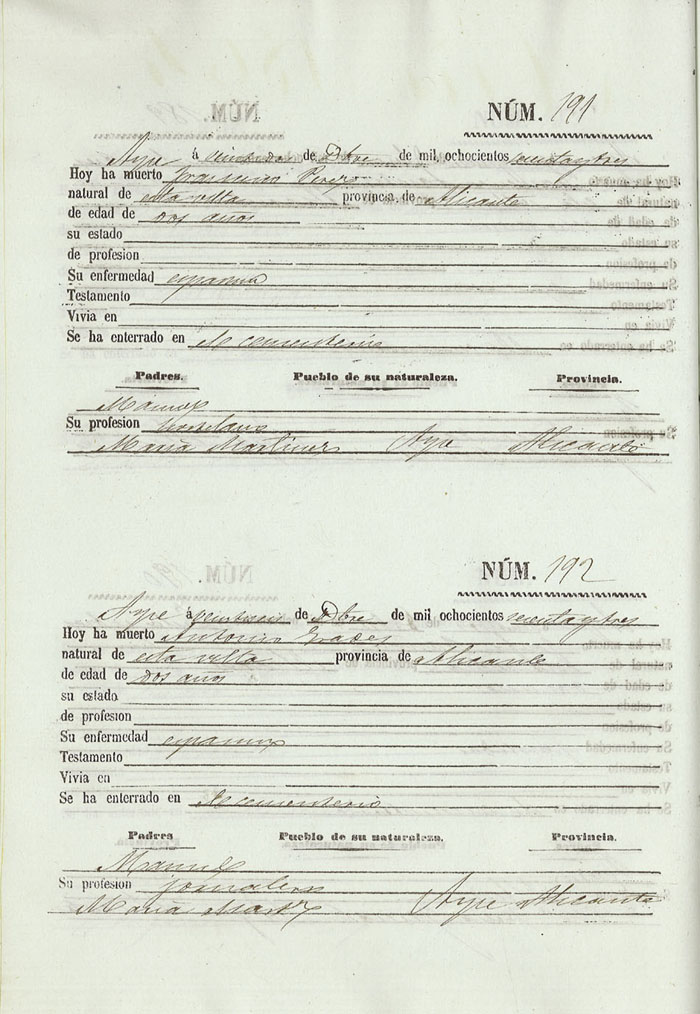 NÚM. 191
Aspe á veintidos de Dbre de mil, ochocientos sesentaytres
Hoy ha muerto Perez
natural de esta villa provincia de Alicante
de edad de dos años
su estado
de profesion
Su enfermedad
Testamento
Vivia en
Se ha enterrado en el cementerio
Padres. Pueblo de su naturaleza. Provincia.
Manuel
Su profesion
Maria Martinez Aspe Alicante
NÚM. 192
Aspe á de Dbre de mil ochocientos sesentaytres
Hoy ha muerto Antonio
natural de esta villa provincia de Alicante
de edad de dos años
su estado
de profesion
Su enfermedad
Testamento
Vivia en
Se ha enterrado en el cementerio
Padres Pueblo de su naturaleza. Provincia.
Manuel
Su profesion jornalero
Maria Aspe Alicante